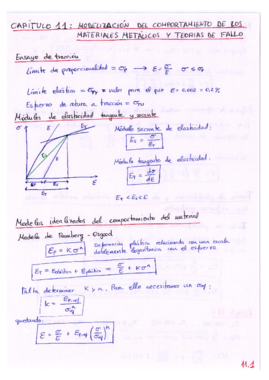 CAPÍTULO 11: MODELIZACIÓN DEL COMPORTAMIENTO DE LOS
MATERIALES METÁLICOS Y TEORÍAS DE FALLO
Ensayo de tracción
Límite de proporcionalidad = σp → E = σ/ε  σ < σp
Límite elástico = σy * valor para el que ε = 0,002 = 0,2%
Esfuerzo de rotura a tracción = σtu
Módulos de elasticidad tangente y secante
Módulo secante de elasticidad:
Es = σ/ε
Módulo tangente de elasticidad:
Et = dσ/dε
Et < Es < E
Modelos idealizados del comportamiento del material
Modelo de Ramberg-Osgood
εp = K σ^n
Deformación plástica relacionada con una escala
doblemente logarítmica con el esfuerzo.
εT = εelástica + εplástica = σ/E + K σ^n
Falta determinar K y n. Para ello necesitamos un σref:
quedando:
11.1